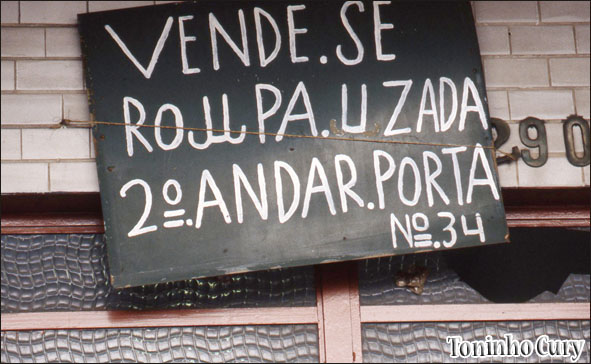 VENDE.SE
ROUPA.UZADA
2º.ANDAR.PORTA
Nº.34
290
Toninho Cury